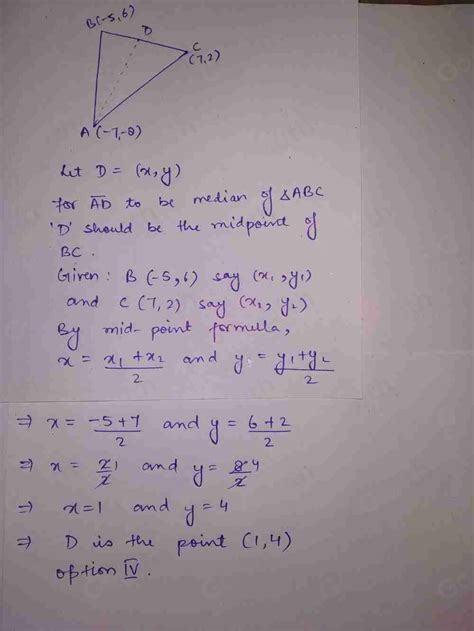 B(-5,6)
D
C
(7,2)
A(-7,-8)
Let D = (x,y)
For A̅D̅ to be median of △ABC
'D' should be the midpoint of
BC.
Given : B (-5,6) say (x₁,y₁)
and C (7,2) say (x₂, y₂)
By mid-point formulla,
x = x₁+x₂/2 and y = y₁+y₂/2
⇒ x = -5+7/2 and y = 6+2/2
⇒ x = 2/2 1 and y = 8/2 4
⇒ x=1 and y=4
⇒ D is the point (1,4)
option IV.